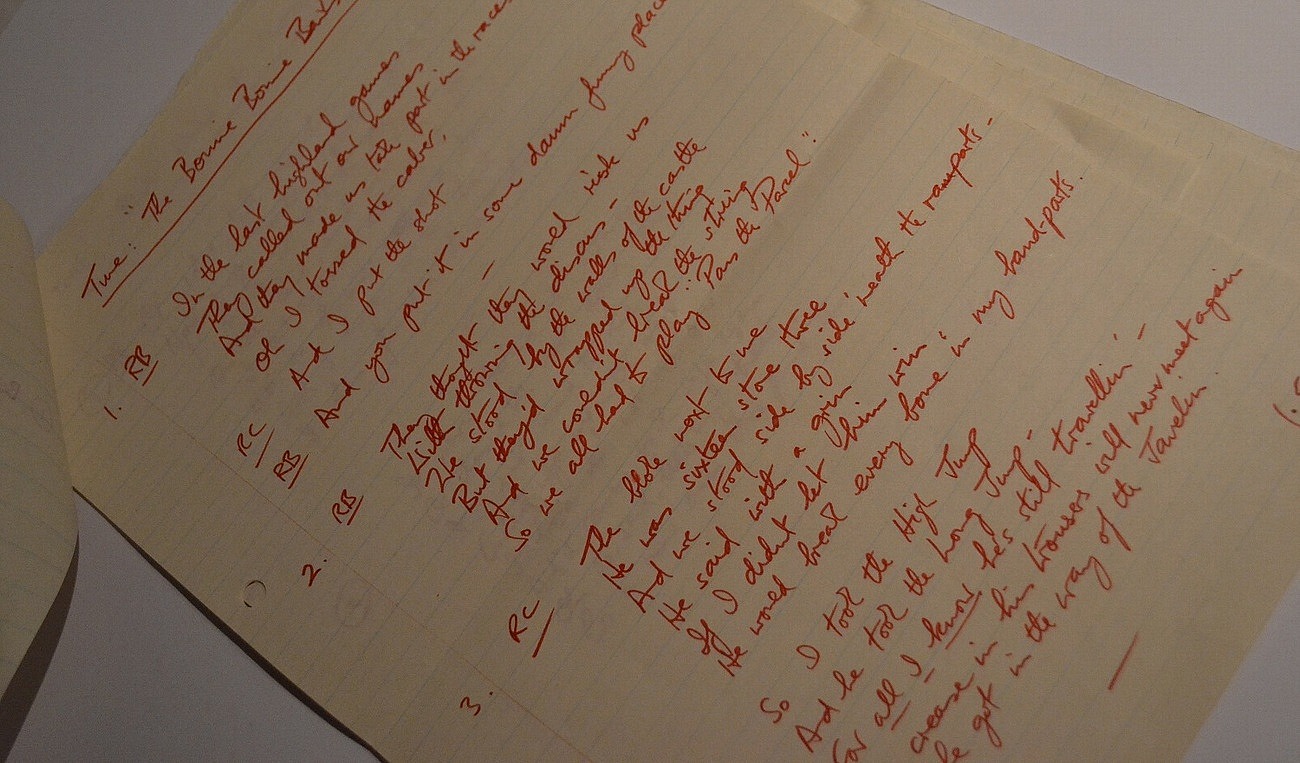 Tune: "The Bonnie Bonnie
1. RB In the last highland games
They called out our names
And they made us take part in the races
Oh I tossed the caber.
RC And I put the shot
RB And you put it in some damn funny place
2. RB Then they thought they would risk us
With throwing the discus -
We stood by the walls of the castle
But they'd wrapped up the thing
And we couldn't break the string
So we all had to play "Pass the Parcel".
3. RC The bloke next to me
He was sixteen stone three
And we stood side by side 'neath the ramparts -
He said with a grin
If I didn't let him win
He would break every bone in my hand-parts.
So I took the High Jump
And he took the Long Jump -
For all I know he's still travellin' -
crease in his trousers will never meet again
he got in the way of the Javelin